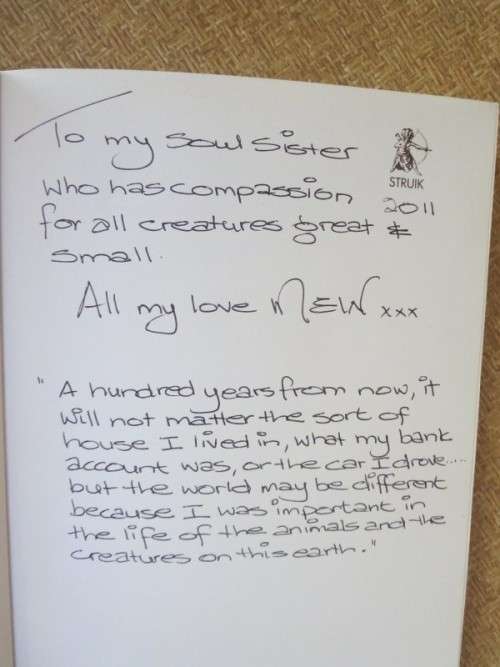 To my Soul Sister
who has compassion
for all creatures great &
small.
STRUIK
2011
All my love MEW xxx
"A hundred years from now, it
will not matter the sort of
house I lived in, what my bank
account was, or the car I drove.....
but the world may be different
because I was important in
the life of the animals and the
creatures on this earth."